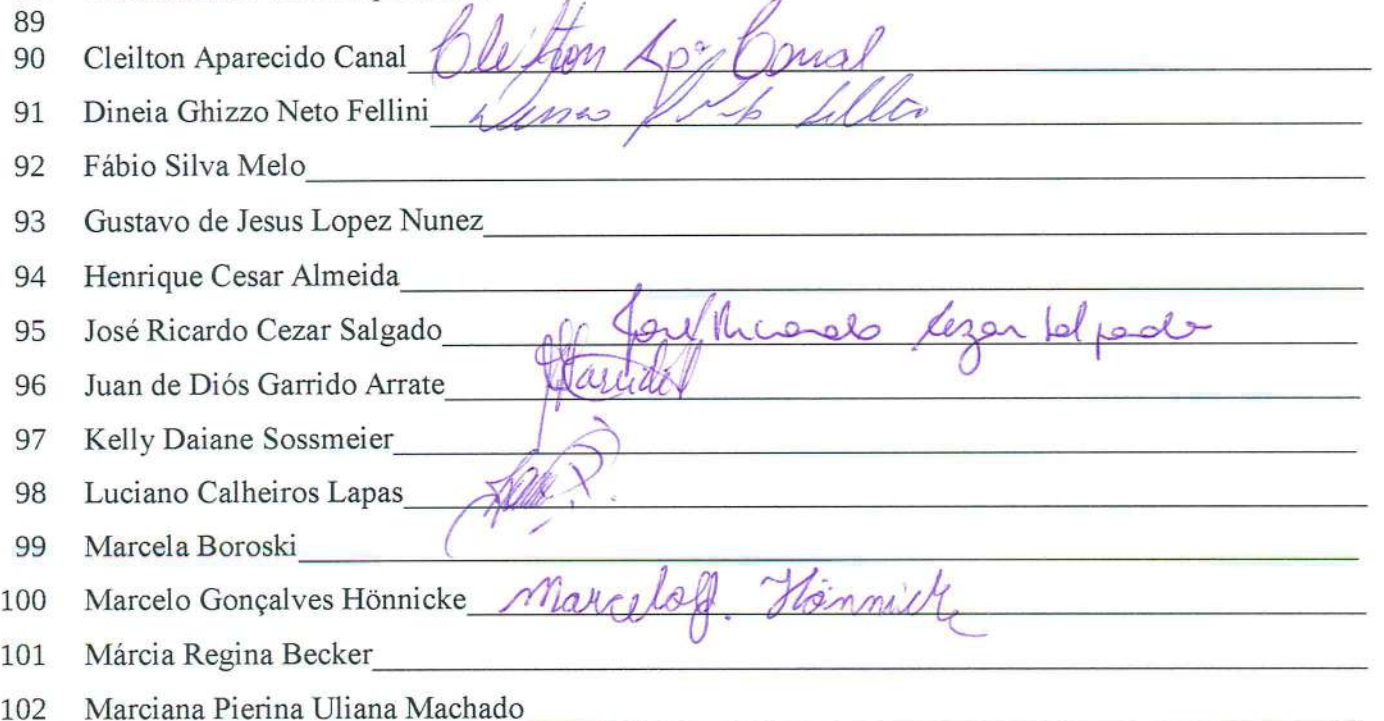 89
90 Cleilton Aparecido Canal Cleilton Apº Canal
91 Dineia Ghizzo Neto Fellini
92 Fábio Silva Melo
93 Gustavo de Jesus Lopez Nunez
94 Henrique Cesar Almeida
95 José Ricardo Cezar Salgado José Ricardo Cezar Salgado
96 Juan de Diós Garrido Arrate
97 Kelly Daiane Sossmeier
98 Luciano Calheiros Lapas
99 Marcela Boroski
100 Marcelo Gonçalves Hönnicke Marcelo G. Hönnicke
101 Márcia Regina Becker
102 Marciana Pierina Uliana Machado